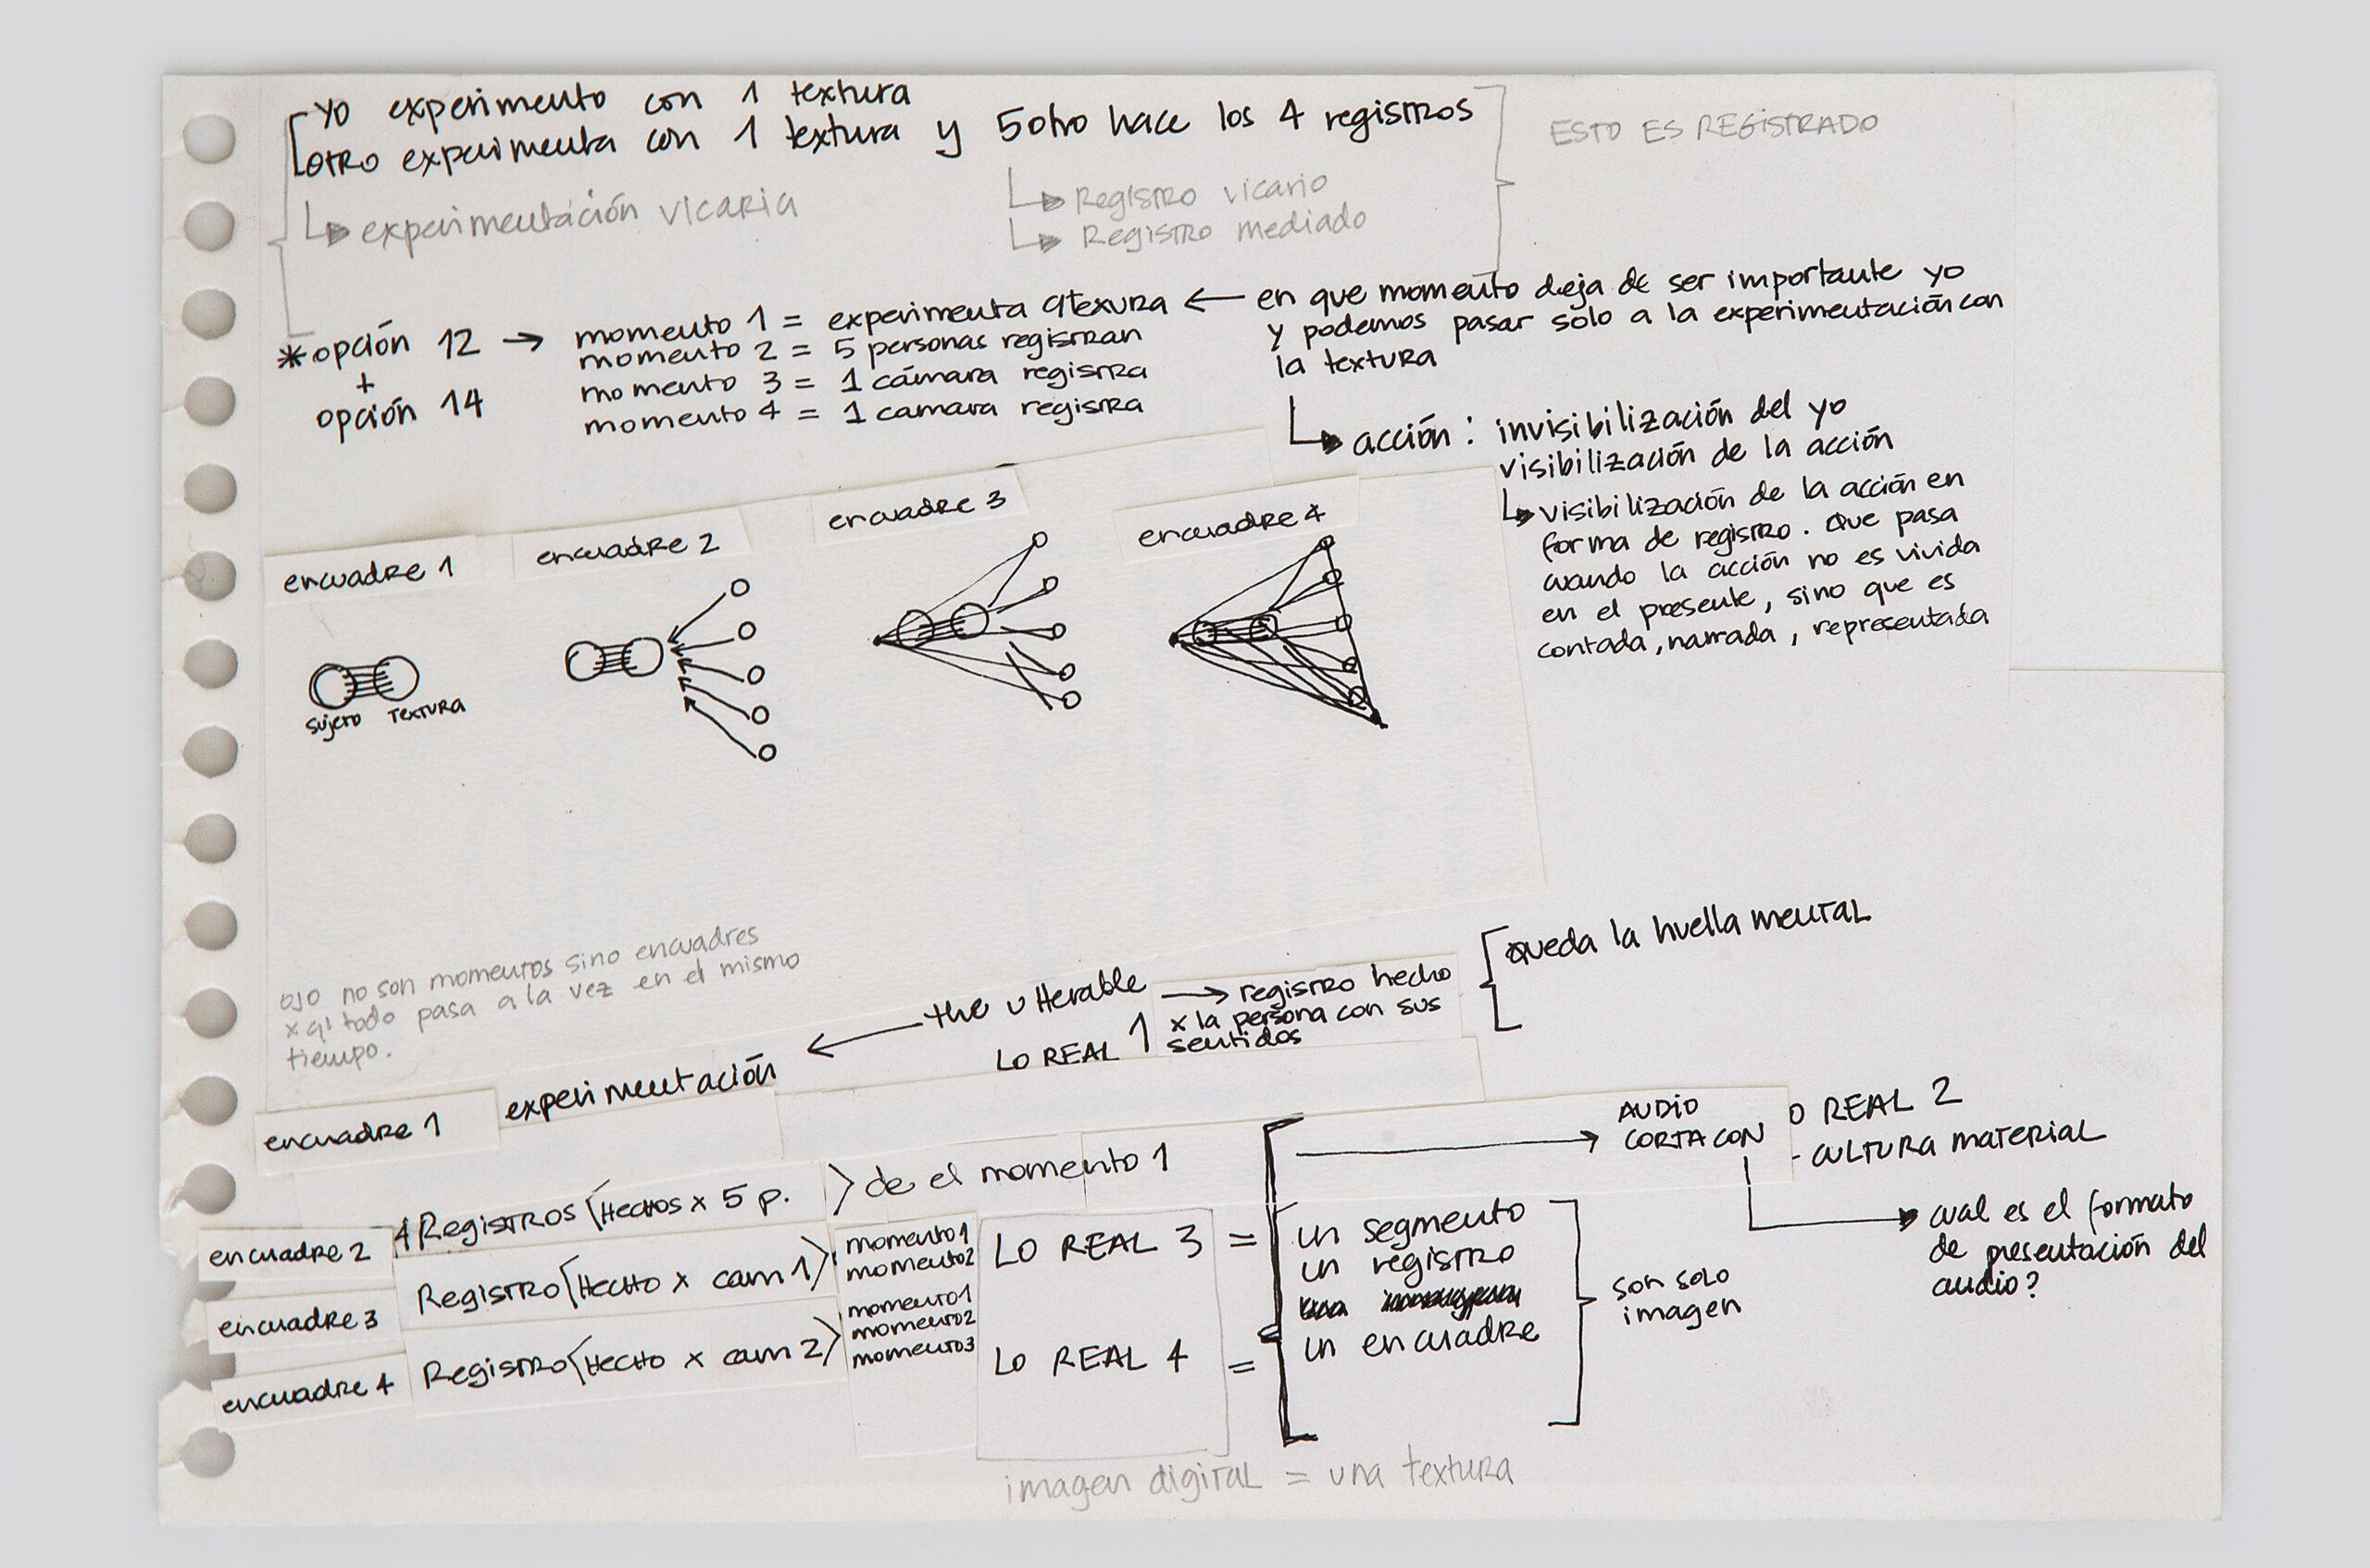 yo experimento con 1 textura
otro experimenta con 1 textura y 5 otro hace los 4 registros
ESTO ES REGISTRADO
experimentación vicaria
Registro vicario
Registro mediado
*opción 12 → momento 1 = experimenta 1 texura ← en que momento deja de ser importante yo
y podemos pasar solo a la experimentación con
la textura
momento 2 = 5 personas registran
+
momento 3 = 1 cámara registra
opción 14
momento 4 = 1 camara registra
acción: invisibilización del yo
visibilización de la acción
visibilización de la acción en
forma de registro. Que pasa
cuando la acción no es vivida
en el presente, sino que es
contada, narrada, representada
encuadre 1
encuadre 2
encuadre 3
encuadre 4
sujeto textura
ojo no son momentos sino encuadres
x q' todo pasa a la vez en el mismo
tiempo.
the utterable → registro hecho
x la persona con sus
sentidos
LO REAL 1
queda la huella mental
encuadre 1 experimentación
AUDIO
CORTA CON
O REAL 2
- CULTURA MATERIAL
cual es el formato
de presentación del
audio?
encuadre 2 4 Registros (Hechos x 5 p. ) de el momento 1
encuadre 3 Registro (Hecho x cam 1)
momento1
momento2
LO REAL 3 =
encuadre 4 Registro (Hecho x cam 2)
momento1
momento2
momento3
LO REAL 4 =
un segmento
un registro
un encuadre
son solo
imagen
imagen digital = una textura